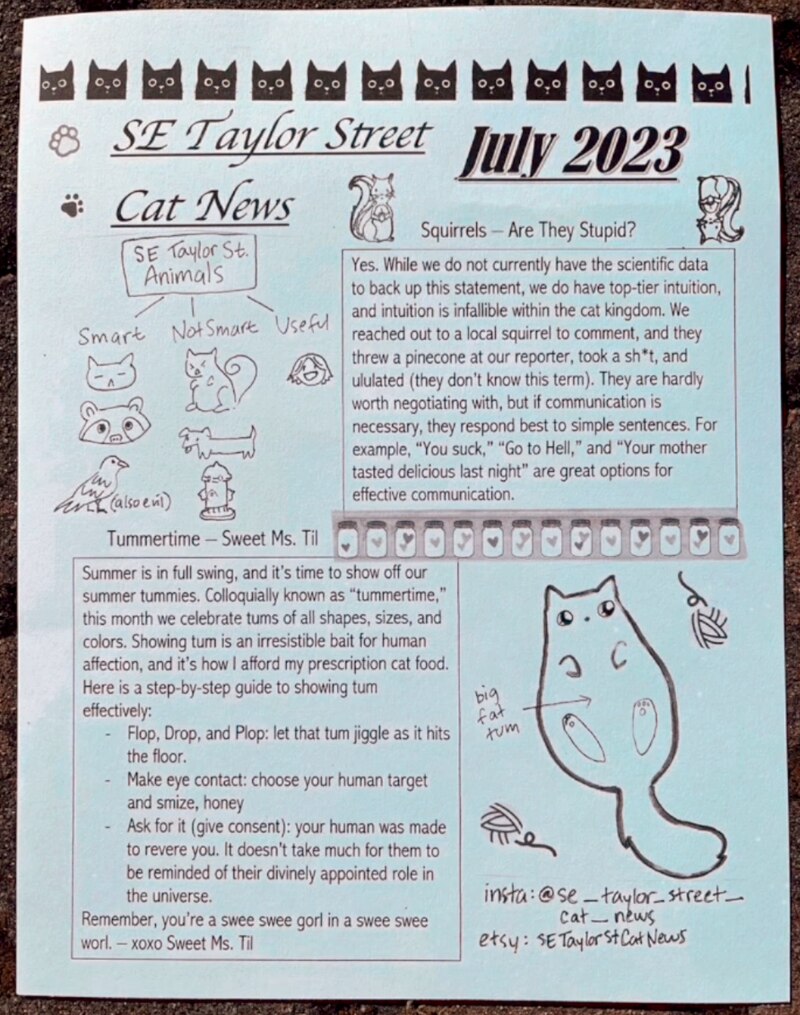 SE Taylor Street
Cat News
July 2023
SE Taylor St.
Animals
Smart
Not Smart
Useful
(also evil)
Squirrels – Are They Stupid?
Yes. While we do not currently have the scientific data
to back up this statement, we do have top-tier intuition,
and intuition is infallible within the cat kingdom. We
reached out to a local squirrel to comment, and they
threw a pinecone at our reporter, took a sh*t, and
ululated (they don't know this term). They are hardly
worth negotiating with, but if communication is
necessary, they respond best to simple sentences. For
example, "You suck," "Go to Hell," and "Your mother
tasted delicious last night" are great options for
effective communication.
Tummertime – Sweet Ms. Til
Summer is in full swing, and it's time to show off our
summer tummies. Colloquially known as "tummertime,"
this month we celebrate tums of all shapes, sizes, and
colors. Showing tum is an irresistible bait for human
affection, and it's how I afford my prescription cat food.
Here is a step-by-step guide to showing tum
effectively:
- Flop, Drop, and Plop: let that tum jiggle as it hits
the floor.
- Make eye contact: choose your human target
and smize, honey
- Ask for it (give consent): your human was made
to revere you. It doesn't take much for them to
be reminded of their divinely appointed role in
the universe.
Remember, you're a swee swee gorl in a swee swee
worl. – xoxo Sweet Ms. Til
big
fat
tum
insta: @se_taylor_street_
cat_news
etsy: SETaylorStCatNews